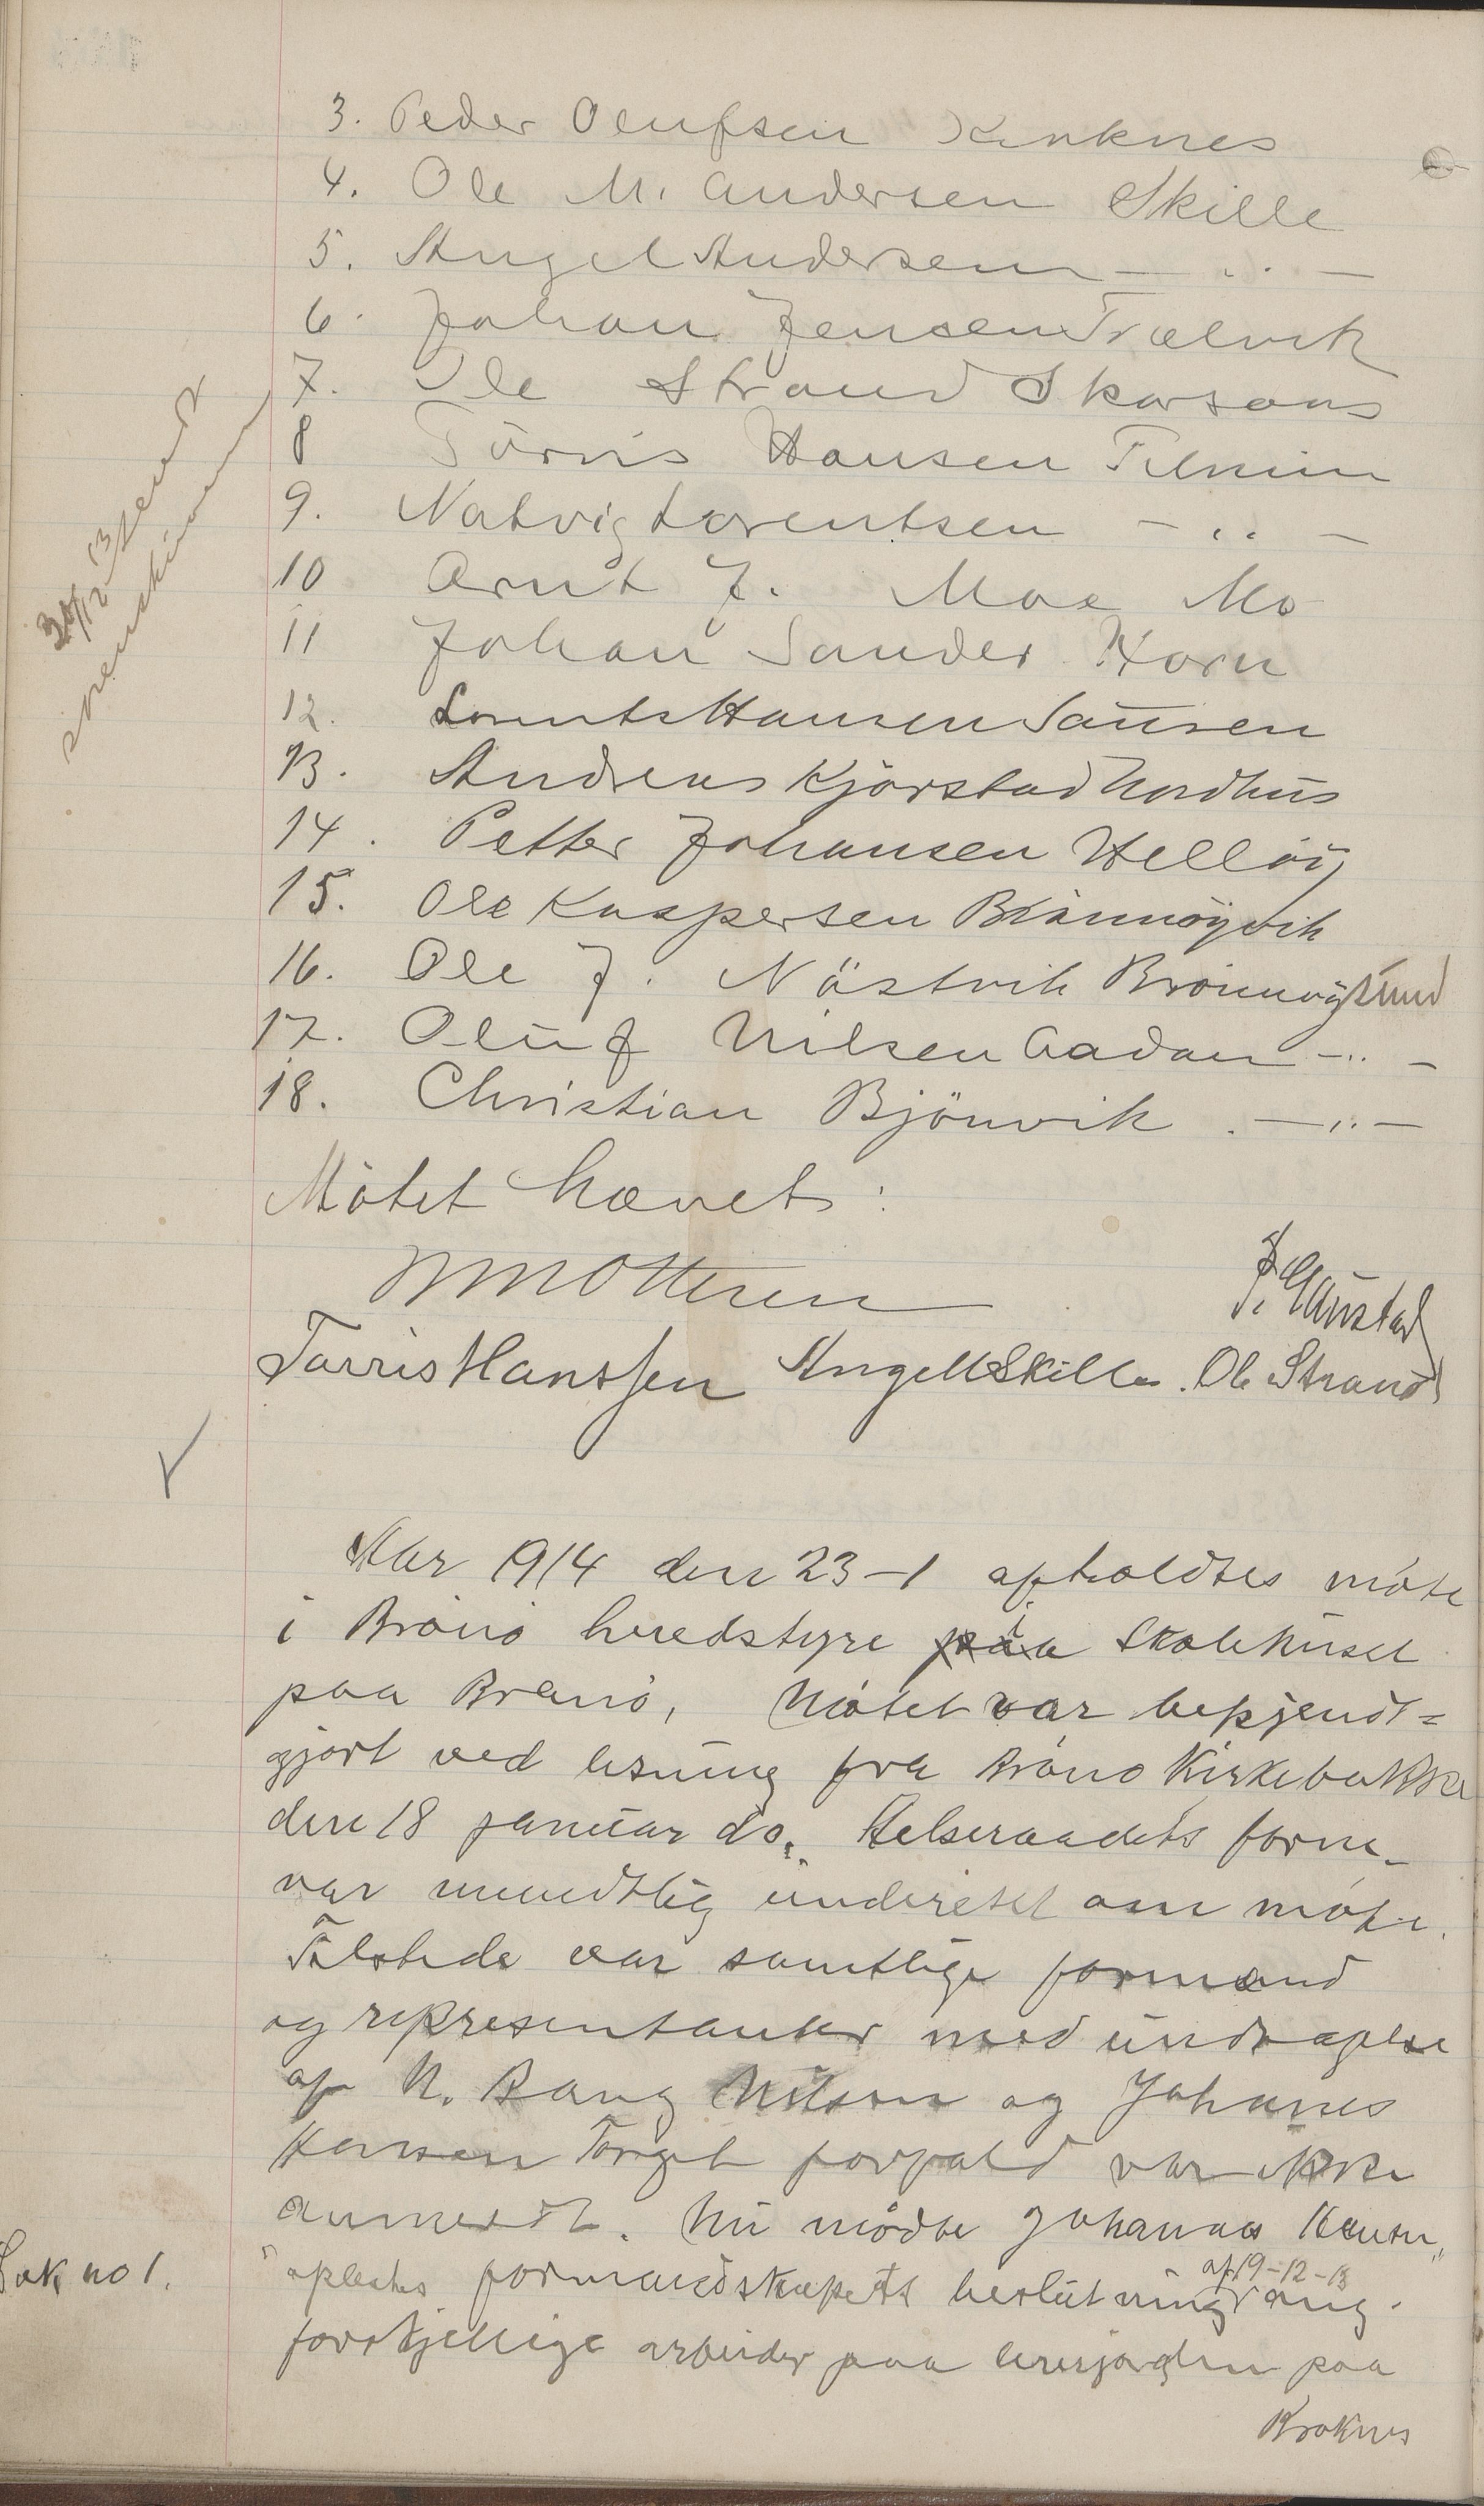 3. Peder Olufsen Kroknes
4. Ole M. Andersen Skille
5. Angel Andersen — „ —
6. Johan Jensen Trælvik
7. Ole Strand Skarsaas
8 Törris Hansen Tilrem
9. Natvig Lorentsen — „ —
10 Arnt J. Moe Mo
11 Johan Sander Horn
12. Lorents Hansen Sausen
13. Andreas Kjörstad Nordhus
14. Petter Johansen Hellöy
15. Ole Kaspersen Brönnöyvik
16. Ole J. Nöstvik Brönnöysund
17. Oluf Nilsen Aadan — „ —
18. Christian Bjönvik — „ —
Mötet hævet:
Ottesen
Torris Hanssen Angell Skille. Ole Strand
30/12 13 sendt
Aar 1914 den 23-1 afholdtes möte
i Brönö heredstyre paa i Skolehuset
paa Brönö, Mötet var bekjendt=
gjort ved læsning fra Brönö Kirkebakke
den 18 januar ds. Helseraadets form.
var mundtlig underetet om möte.
Tilstede var samtlige formænd
og representanter med undtagelse
af N. Bang Nilsen og Johanes
Hansen Torget forfald var ikke
anmeldt. Nu mödte Johannes Hansen „
Sak no 1. „oplæstes formandskapets beslutning af 19-12-13 ang.
forskjellige arbeider paa lærerjorden paa
Kroknes